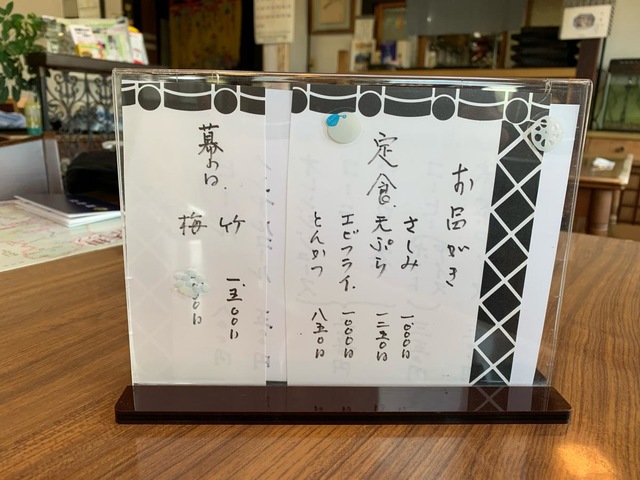 お品がき
定食
さしみ 一〇〇〇円
天ぷら 一二五〇円
エビフライ 一〇〇〇円
とんかつ 八五〇円
幕の内
竹 一、五〇〇円
梅 〇〇円